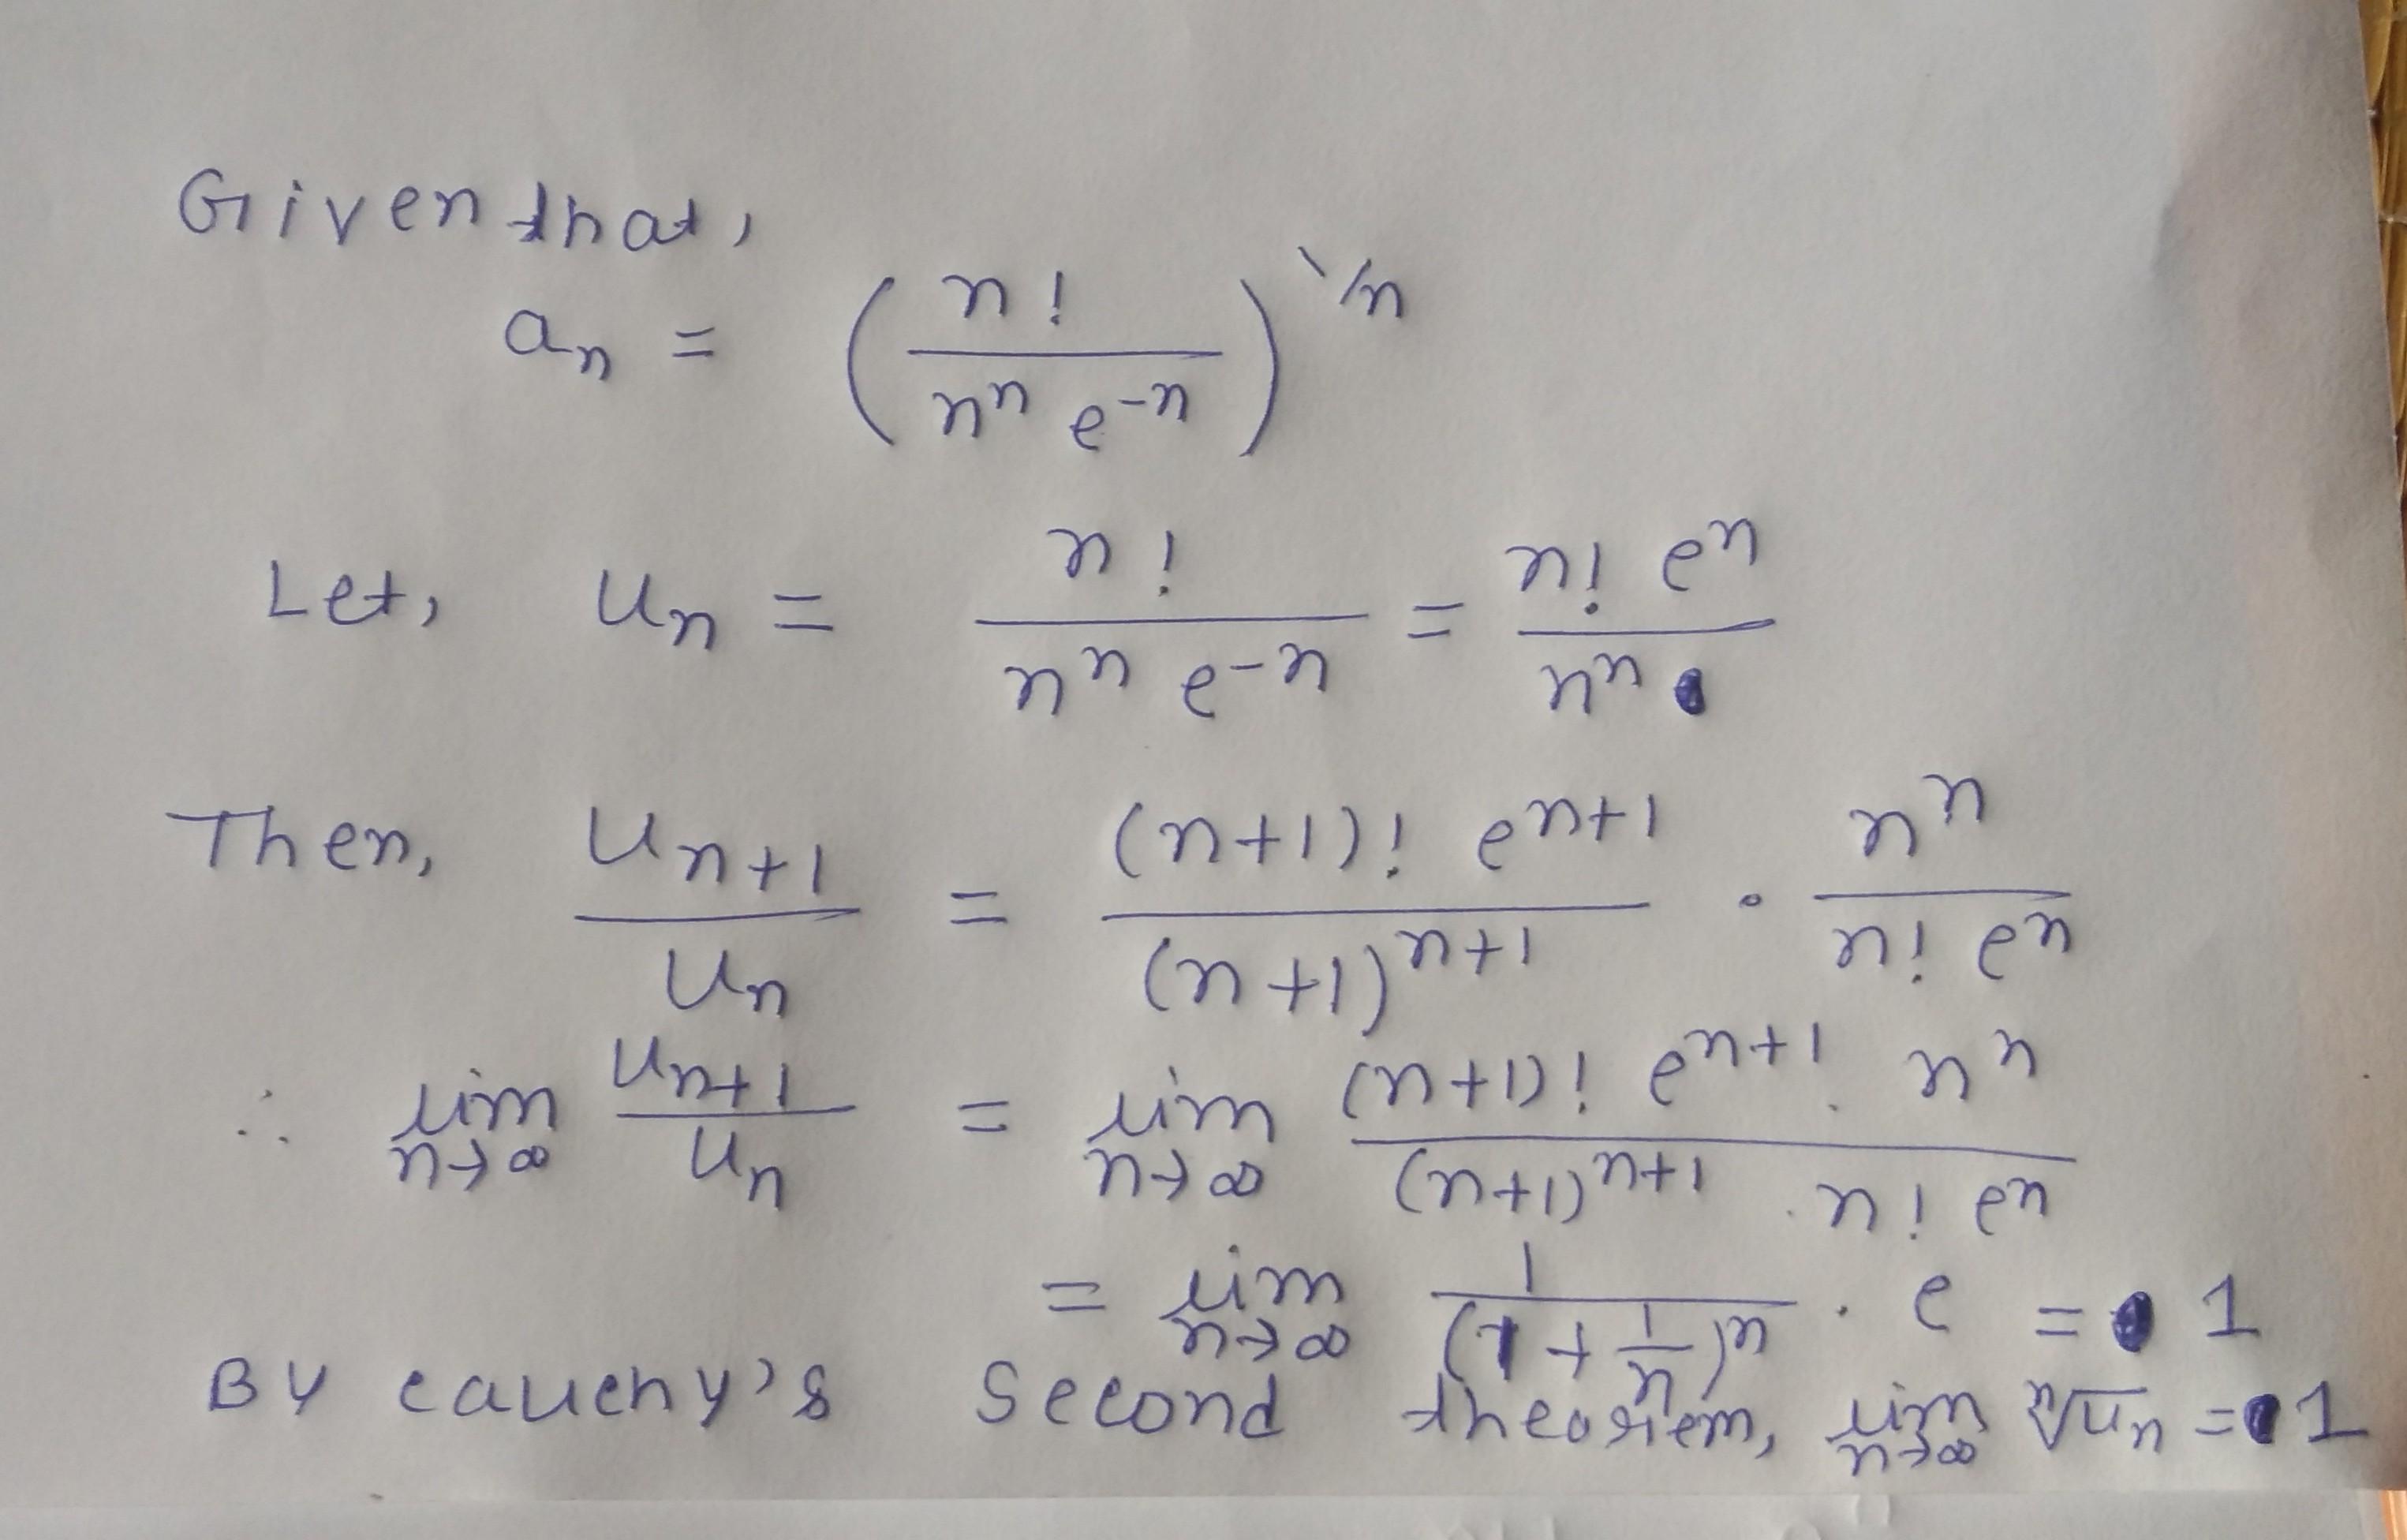 Given that,
aₙ = (n! / nⁿ e⁻ⁿ)^1/n
Let, uₙ = n! / nⁿ e⁻ⁿ = n! eⁿ / nⁿ
Then, uₙ₊₁ / uₙ = (n+1)! eⁿ⁺¹ / (n+1)ⁿ⁺¹ · nⁿ / n! eⁿ
∴ lim n→∞ uₙ₊₁ / uₙ = lim n→∞ (n+1)! eⁿ⁺¹ · nⁿ / (n+1)ⁿ⁺¹ · n! eⁿ
= lim n→∞ 1 / (1 + 1/n)ⁿ · e = 1
By cauchy's second theorem, lim n→∞ ⁿ√uₙ = 1